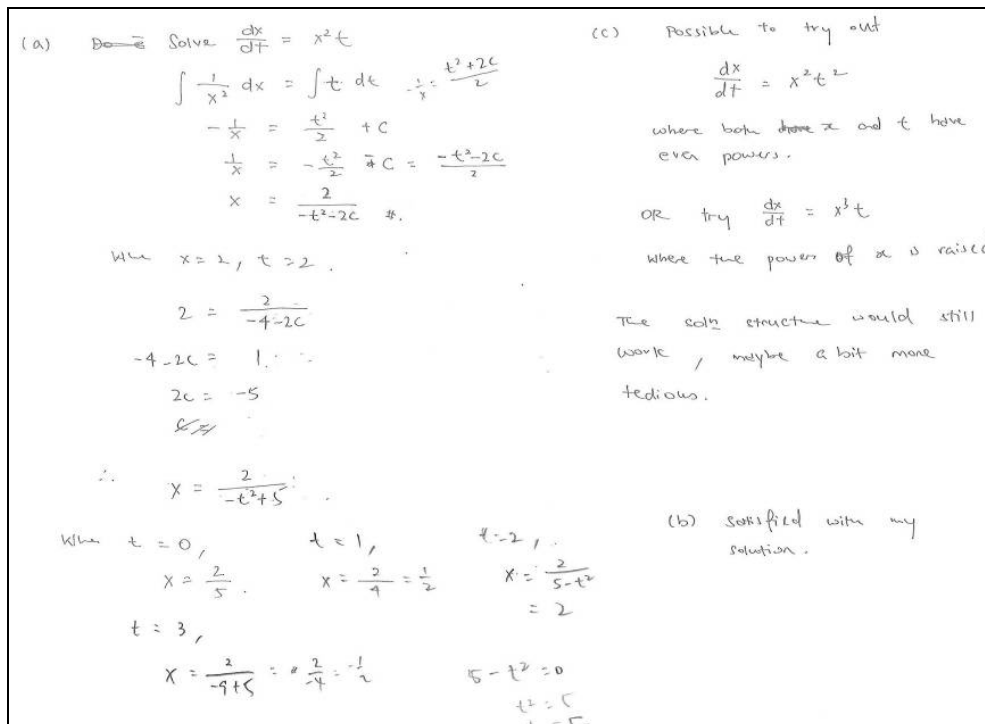 (a) Solve dx/dt = x²t
∫ 1/x² dx = ∫ t dt   -1/x = (t²+2C)/2
-1/x = t²/2 + C
1/x = -t²/2 - C = (-t²-2C)/2
x = 2/(-t²-2C) #.
When x = 2, t = 2.
2 = 2/(-4-2C)
-4-2C = 1.
2C = -5
∴ x = 2/(-t²+5)
When t = 0,
x = 2/5.
t = 1,
x = 2/4 = 1/2
t = 2,
x = 2/(5-t²)
= 2
t = 3,
x = 2/(-9+5) = 2/-4 = -1/2
5 - t² = 0
t² = 5
(c) Possible to try out
dx/dt = x²t²
where both x and t have
even powers.
OR try dx/dt = x³t
where the power of x is raised
The soln structure would still
work, maybe a bit more
tedious.
(b) satisfied with my
solution.